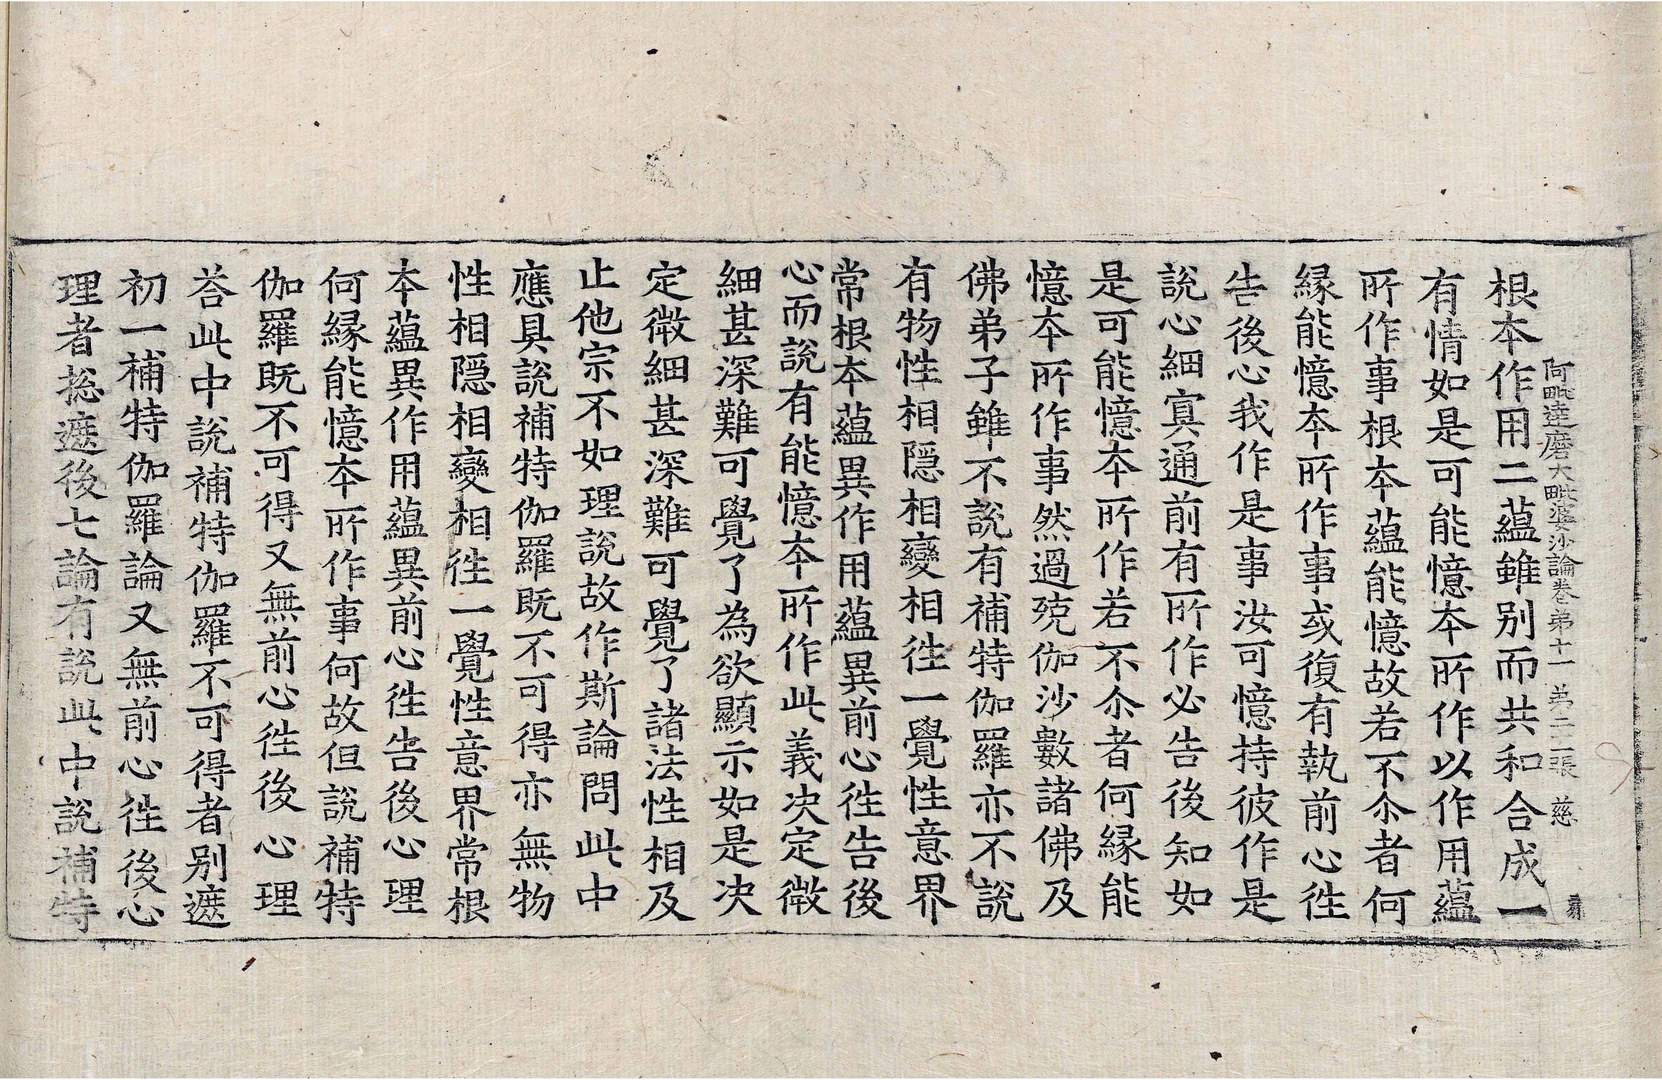 阿毗達磨大毗婆沙論卷苐十一 苐二張 慈
根夲作用二蘊雖别而共和合成一
有情如是可能憶夲所作以作用蘊
所作事根夲蘊能憶故若不尒者何
縁能憶夲所作事或復有執前心徃
告後心我作是事汝可憶持彼作是
說心細㝠通前有所作必告後知如
是可能憶夲所作若不尒者何縁能
憶夲所作事然過殑伽沙數諸佛及
佛弟子雖不說有補特伽羅亦不說
有物性相隱相變相徃一覺性意界
常根夲蘊異作用蘊異前心徃告後
心而說有能憶夲所作此義决定微
細甚深難可覺了為欲顯示如是决
定微細甚深難可覺了諸法性相及
止他宗不如理說故作斯論問此中
應具說補特伽羅既不可得亦無物
性相隱相變相徃一覺性意界常根
夲蘊異作用蘊異前心徃告後心理
何縁能憶夲所作事何故但說補特
伽羅既不可得又無前心徃後心理
荅此中說補特伽羅不可得者别遮
初一補特伽羅論又無前心徃後心
理者捴遮後七論有說此中說補特